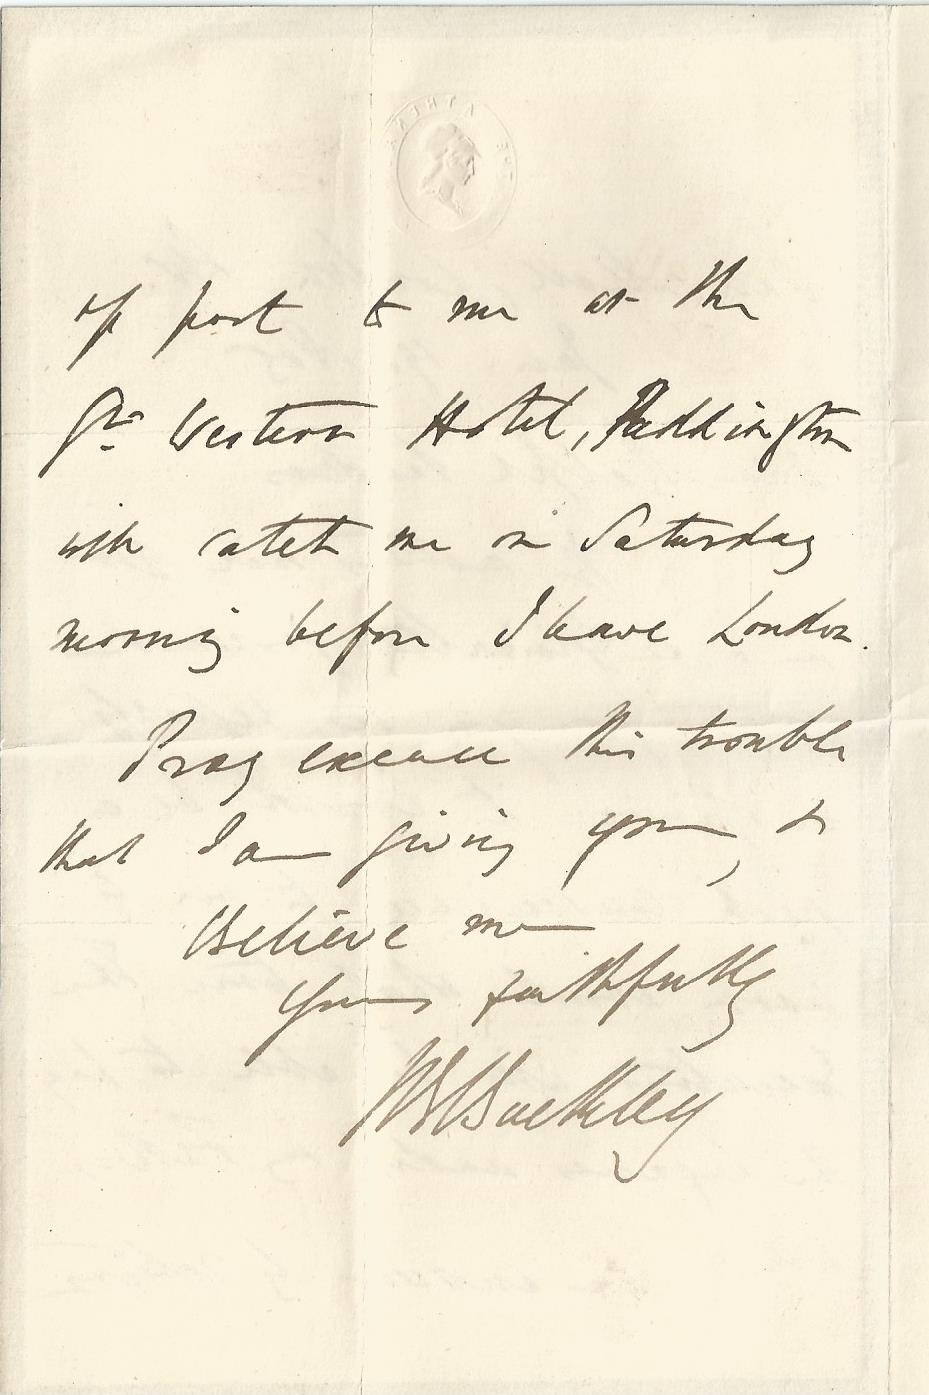 of post to me at the
Gt. Western Hotel, Paddington
will catch me on Saturday
morning before I leave London.
Pray excuse this trouble
that I am giving you, &
Believe me
Yours faithfully
Buckley